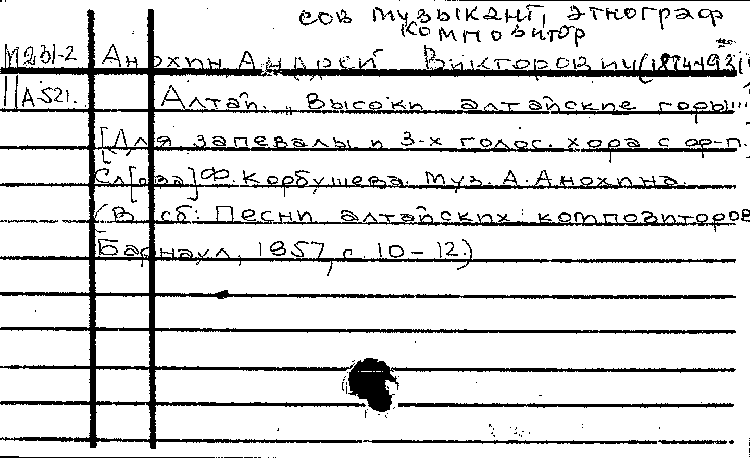 сов музыкант, этнограф
композитор
М231-2 Анохин Андрей Викторович (1874-1931
IIА521. Алтай. „Высоки алтайские горы"...
[Для запевалы и 3-х голос. хора с ф-п.
Сл[ова] Ф. Корбушева. Муз. А. Анохина.
(В сб: Песни алтайских композиторов
Барнаул, 1957, с. 10-12.)